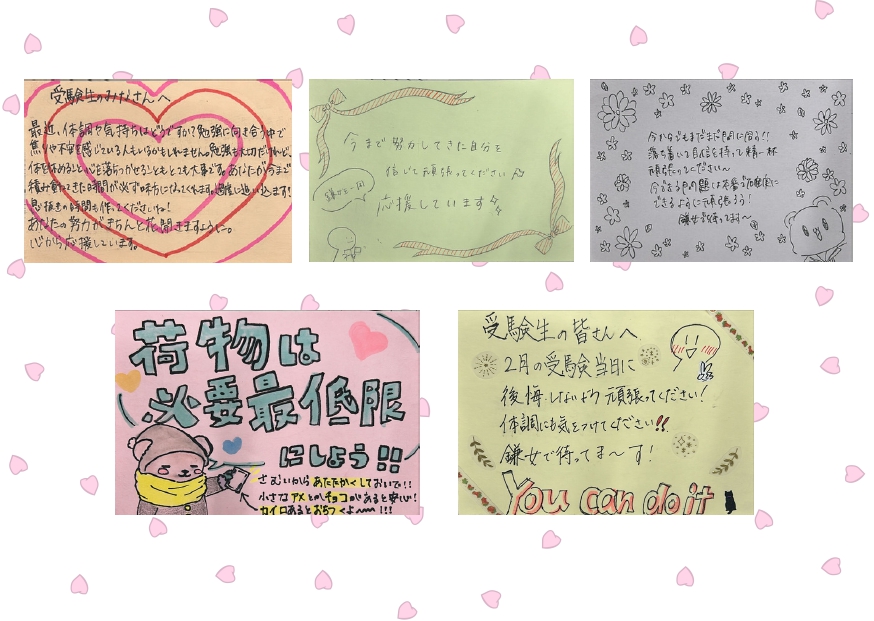 受験生のみなさんへ
最近、体調や気持ちはどうですか?勉強に向き合う中で
焦りや不安を感じている人もいるかもしれません。勉強も大切だけれど、
体を休めること、心を落ちつかせることもとても大事です。あなたが今まで
積み重ねてきた時間が必ず味方になってくれます。過度に追い込まず!
息抜きの時間も作ってくださいね!
あなたの努力がきちんと花開きますように。
心から応援しています。
今まで努力してきた自分を
信じて頑張ってください
応援しています
今からでもまだまだ間に合う!!
落ち着いて自信を持って精一杯
頑張ってください〜
できるように頑張ろう!
鎌女で待ってます〜
荷物は
必要最低限
にしよう!!
さむいからあたたかくしておいで!!
小さなアメとかチョコがあると安心!
カイロあるとおちつくよ〜!!!
受験生の皆さんへ
2月の受験当日に
後悔しないよう頑張ってください!
体調にも気をつけてください!!
鎌女で待ってまーす!
You can do it